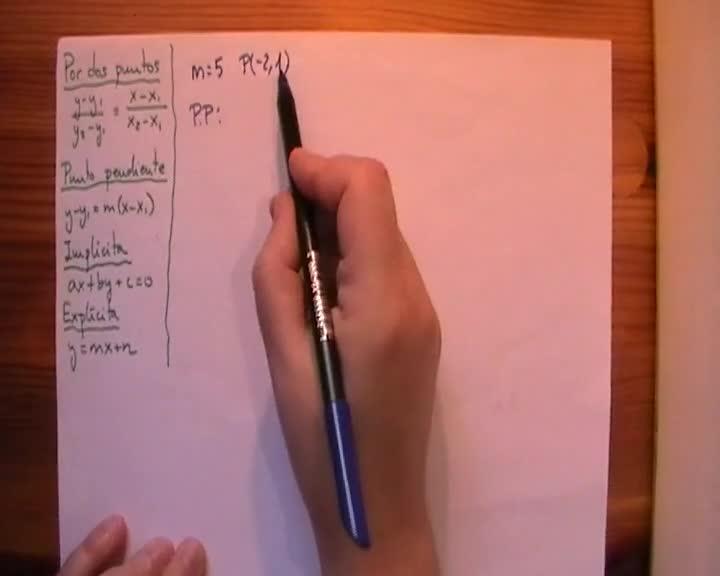 Por dos puntos
y-y₁/y₂-y₁ = x-x₁/x₂-x₁
Punto pendiente
y-y₁=m(x-x₁)
Implícita
ax+by+c=0
Explícita
y=mx+n
m=5 P(-2,1)
P.P: